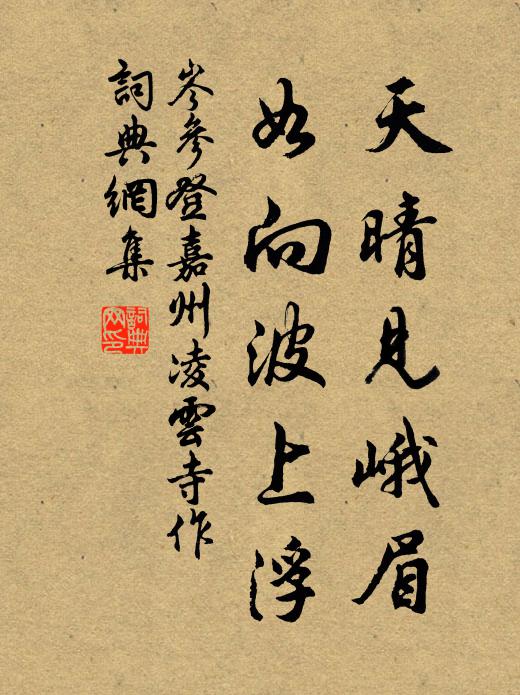 天晴見峨眉
如向波上浮
岑參登嘉州凌雲寺作
詞典網集
詞典网印